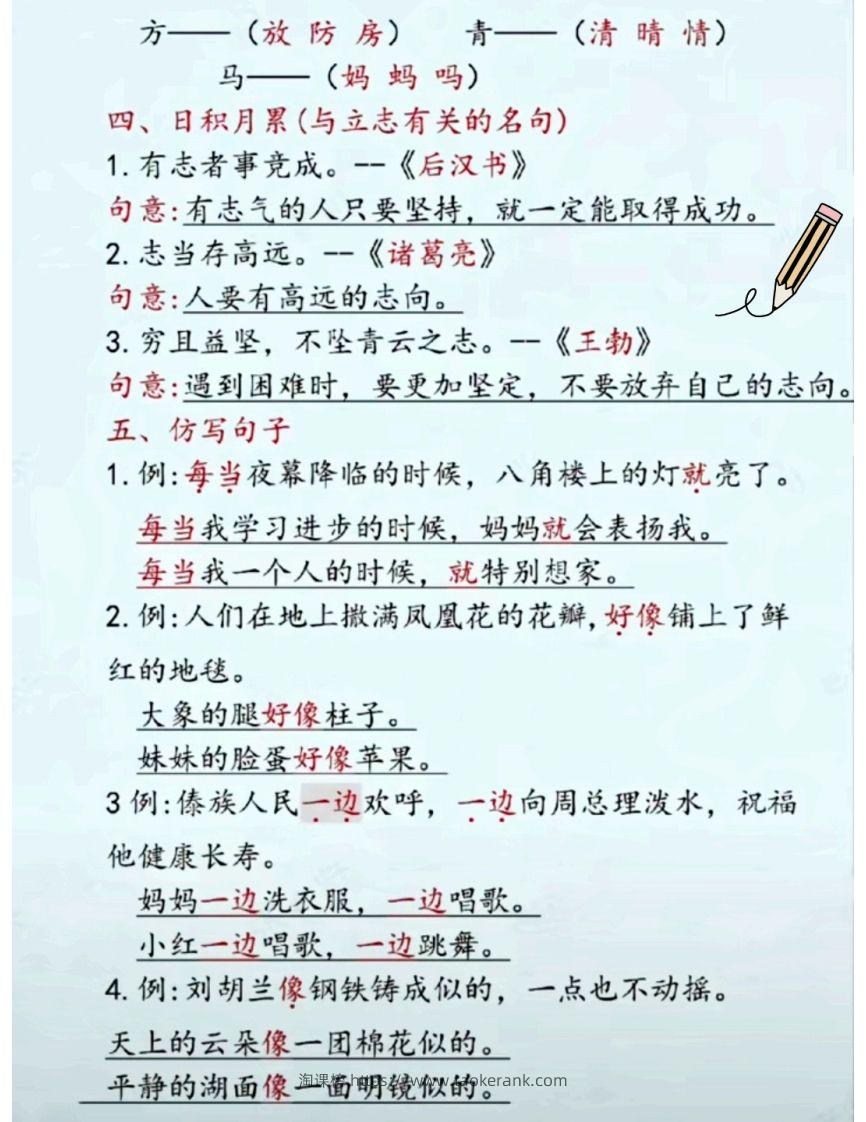 方——（放 防 房） 青——（清 晴 情）
马——（妈 蚂 吗）
四、日积月累(与立志有关的名句)
1.有志者事竞成。--《后汉书》
句意:有志气的人只要坚持，就一定能取得成功。
2.志当存高远。--《诸葛亮》
句意:人要有高远的志向。
3.穷且益坚，不坠青云之志。--《王勃》
句意:遇到困难时，要更加坚定，不要放弃自己的志向。
五、仿写句子
1.例:每当夜幕降临的时候，八角楼上的灯就亮了。
每当我学习进步的时候，妈妈就会表扬我。
每当我一个人的时候，就特别想家。
2.例:人们在地上撒满凤凰花的花瓣,好像铺上了鲜
红的地毯。
大象的腿好像柱子。
妹妹的脸蛋好像苹果。
3例:傣族人民一边欢呼，一边向周总理泼水，祝福
他健康长寿。
妈妈一边洗衣服，一边唱歌。
小红一边唱歌，一边跳舞。
4.例:刘胡兰像钢铁铸成似的，一点也不动摇。
天上的云朵像一团棉花似的。
平静的湖面像一面明镜似的。
淘课榜 https://www.taokerank.com